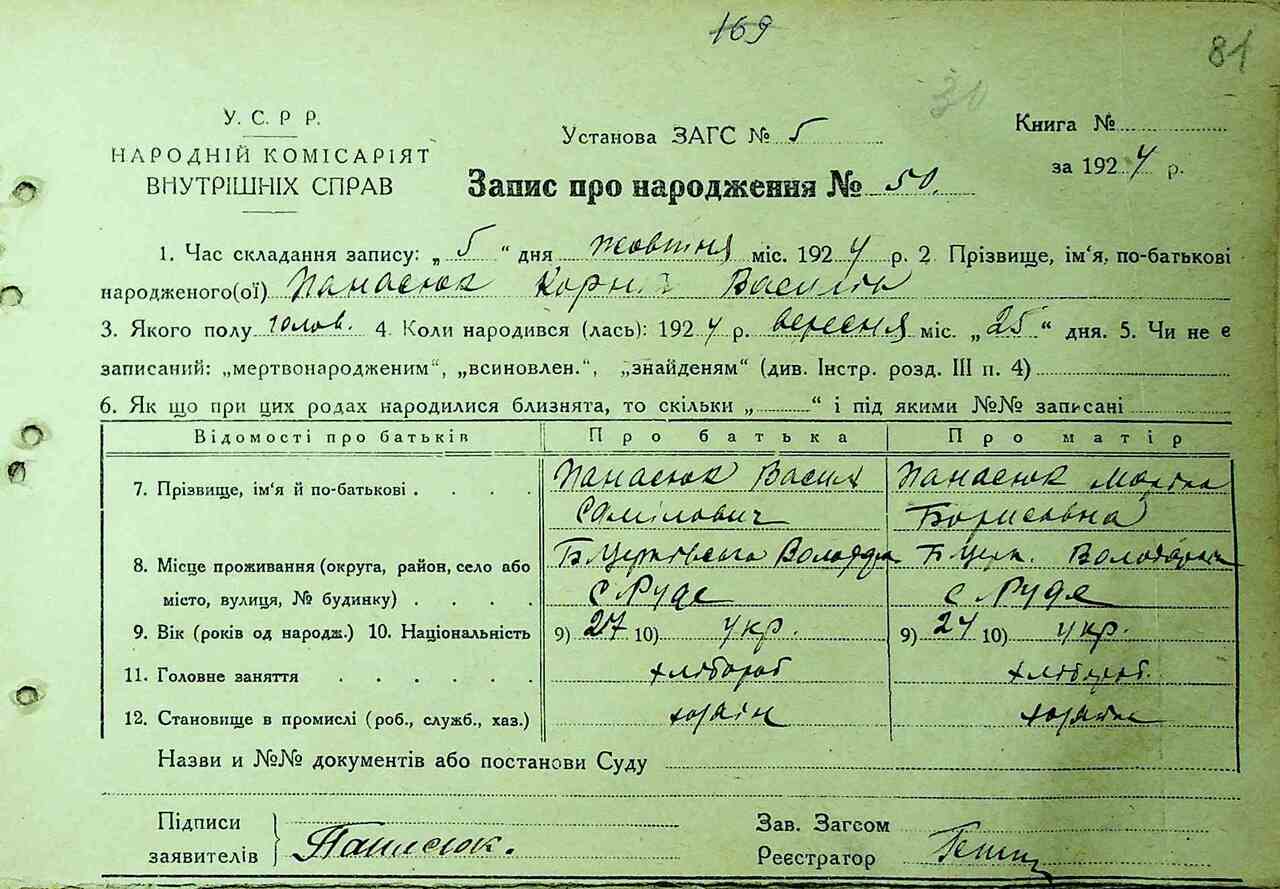 169
81
30
У. С. Р. Р.
НАРОДНІЙ КОМІСАРІЯТ
ВНУТРІШНІХ СПРАВ
Установа ЗАГС № 5
Книга №
за 1924 р.
Запис про народження № 50.
1. Час складання запису: „ 5 “ дня жовтня міс. 1924 р. 2. Прізвище, ім‘я, по-батькові
народженого(ої) Панасюк Корній Василів
3. Якого полу чолов. 4. Коли народився (лась): 1924 р. вересня міс. „ 25 “ дня. 5. Чи не є
записаний: „мертвонародженим“, „всиновлен.“, „знайденям“ (див. Інстр. розд. III п. 4)
6. Як що при цих родах народилися близнята, то скільки „ “ і під якими №№ записані
Відомості про батьків Про батька Про матір
7. Прізвище, ім‘я й по-батькові Панасюк Васил Панасюк
Самілович Борисовна
8. Місце проживання (округа, район, село або Б Церківська Б Церк.
місто, вулиця, № будинку) с Руде с Руде
9. Вік (років од народж.) 10. Національність 9) 27 10) укр. 9) 24 10) укр.
11. Головне заняття хлібороб хлібороб.
12. Становище в промислі (роб., служб., хаз.) хазяїн хазяйка
Назви и №№ документів або постанови Суду
Підписи
заявителів Панасюк.
Зав. Загсом
Реєстратор